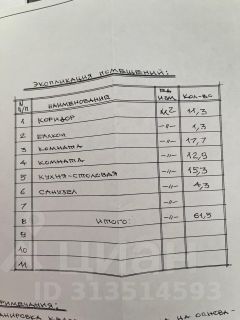 ЭКСПЛИКАЦИЯ ПОМЕЩЕНИЙ:
N П/П НАИМЕНОВАНИЕ ЕД. ИЗМ КОЛ-ВО
1 КОРИДОР М2 11,3
2 БАЛКОН -//- 1,3
3 КОМНАТА -//- 17,7
4 КОМНАТА -//- 12,9
5 КУХНЯ-СТОЛОВАЯ -//- 15,3
6 САНУЗЕЛ -//- 4,3
7 -//-
8 ИТОГО: -//- 61,5
9
10
11
ЦИАН
ID 313514593
ПРИМЕЧАНИЯ:
НА ОСНОВА-